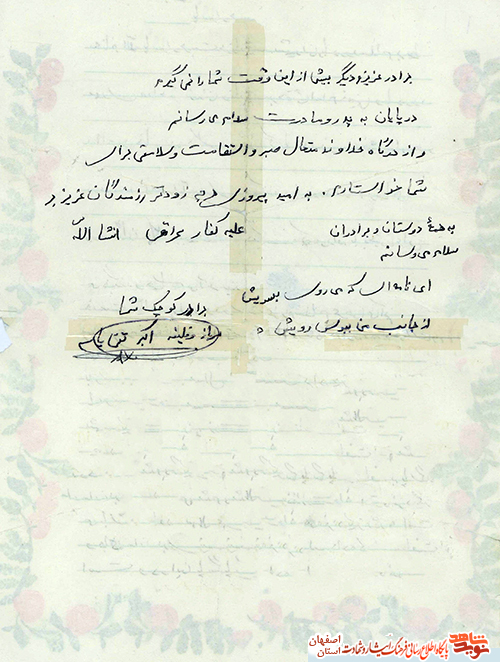 برادر عزیز دیگر بیش از این وقت شما را نمی گیرم
در پایان به پدر و مادرت سلام می رسانم
و از درگاه خداوند متعال صبر و استقامت و سلامتی برای
شما خواستارم. به امید پیروزی هر چه زودتر رزمندگان عزیز بر
علیه کفار عراقی انشا الله
به همهٔ دوستان و برادران
سلام می رسانم
ای نامه ای که می روی بسویش
از جانب من ببوس رویش
برادر کوچک شما
اکبر
نوید شاهد
پایگاه اطلاع رسانی فرهنگ ایثار و شهادت
استان اصفهان